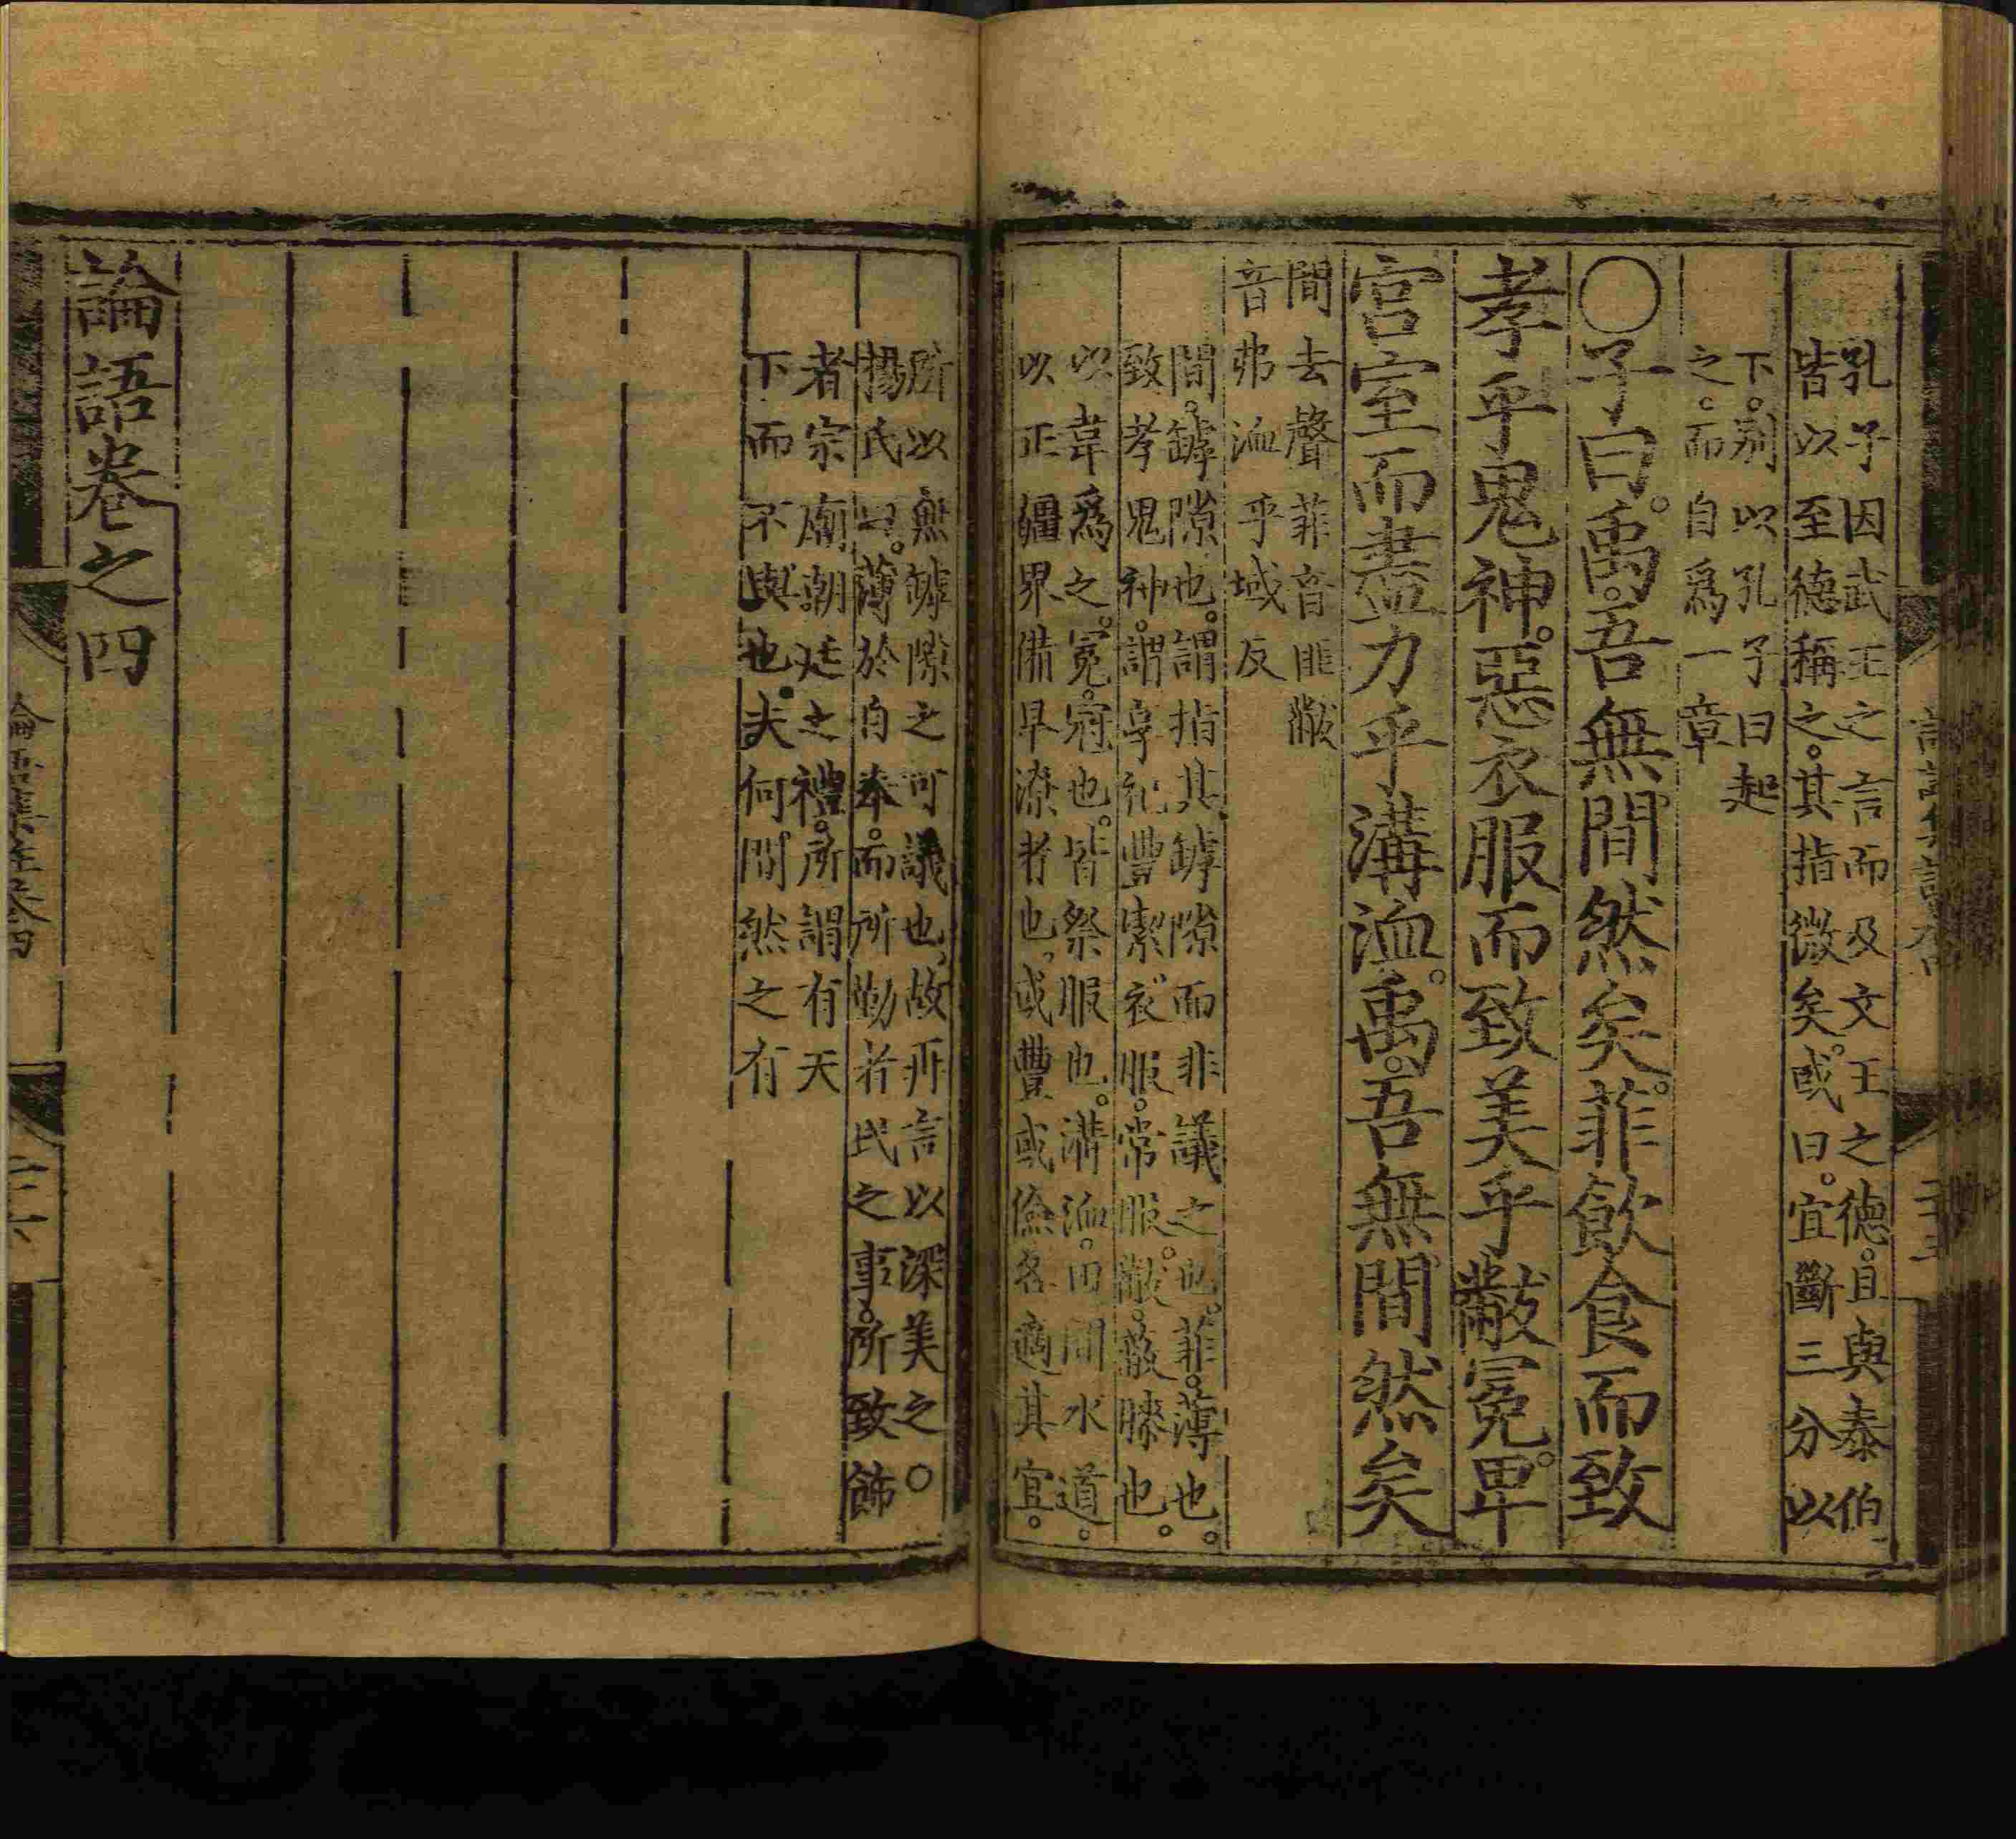 孔子因武王之言而及文王之德。且與泰伯
皆以至德稱之。其指微矣。或曰。宜斷三分以
下。別以孔子曰起
之。而自爲一章
〇子曰。禹。吾無間然矣。菲飲食而致
孝乎鬼神。惡衣服而致美乎黻冕。卑
宮室而盡力乎溝洫。禹。吾無間然矣
間去聲菲音匪黻
音弗洫乎域反
間。罅隙也。謂指其罅隙而非議之也。菲。薄也。
致孝鬼神。謂享祀豐潔。衣服。常服。黻。蔽膝也。
以韋爲之。冕。冠也。皆祭服也。溝洫。田間水道。
以正疆界備旱潦者也。或豐或儉各適其宜。
所以無罅隙之可議也、故再言以深美之。〇
揚氏曰。薄於自奉。而所勤者民之事。所致飾
者宗廟朝廷之禮。所謂有天
下而不與也。夫何間然之有
論語卷之四
論語集註卷四
二十六